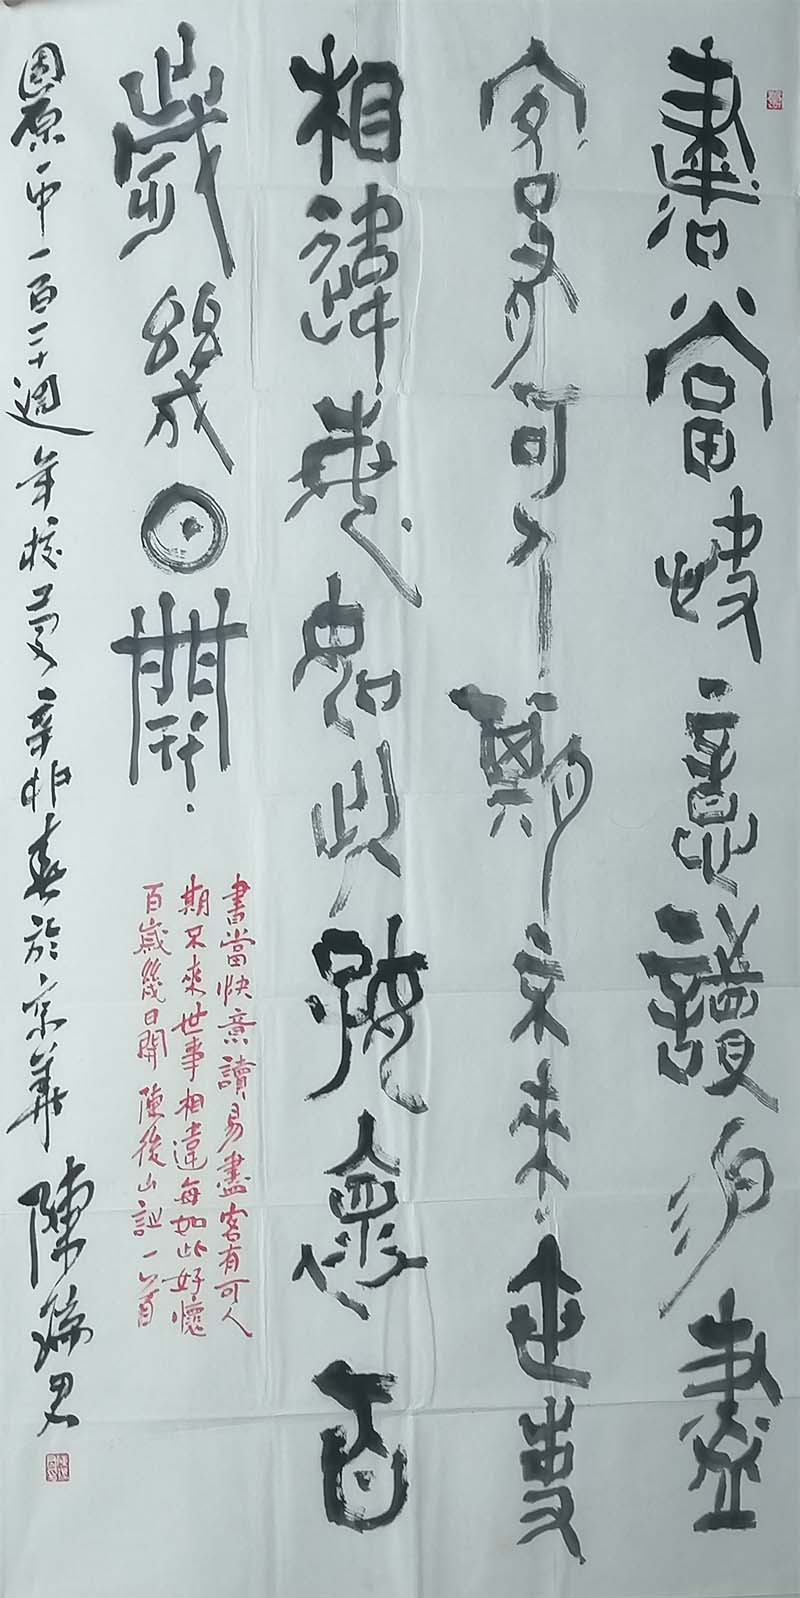 書當快意讀易盡
客有可人期不來世事
相違每如此好懷百
歲幾日開
書當快意讀易盡客有可人
期不來世事相違每如此好懷
百歲幾日開 陳後山詩一首
固原一中一百二十週年校慶辛卯春於京華 陳